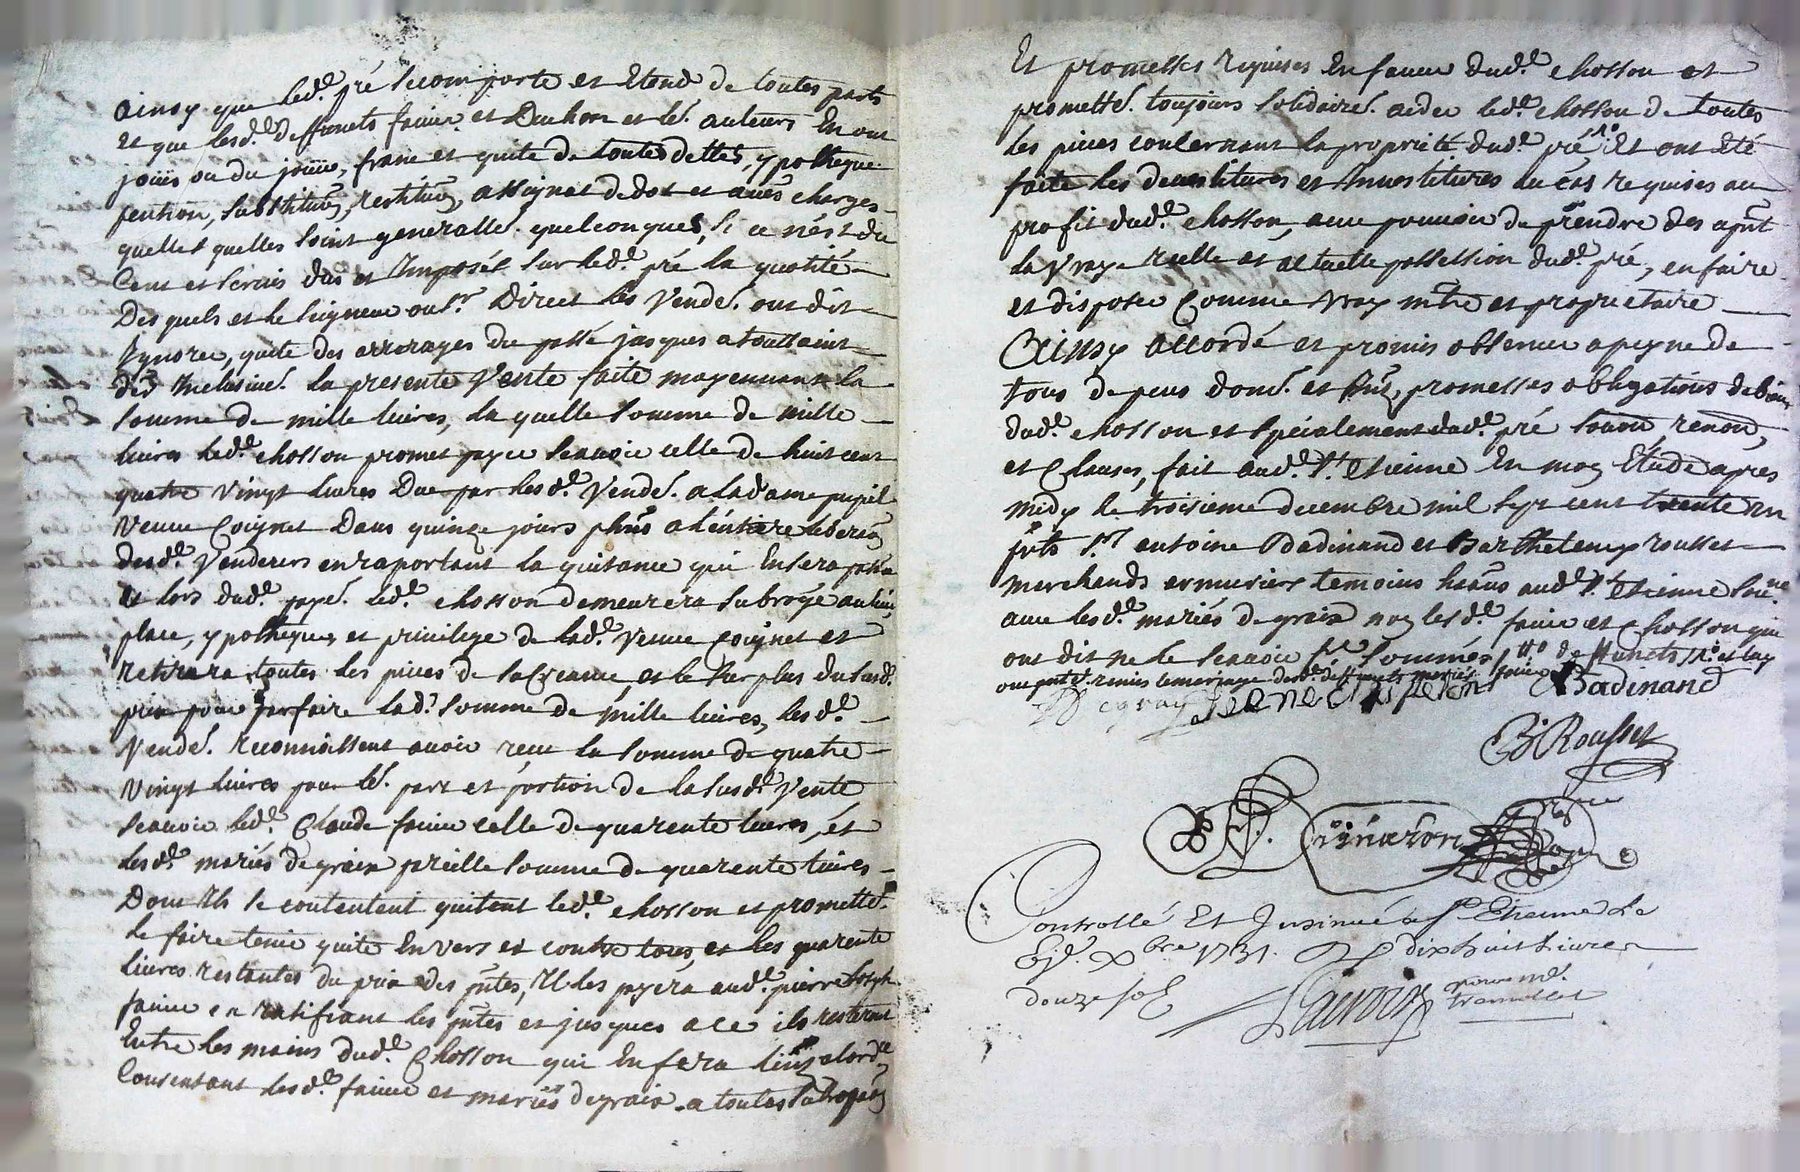 ainsy que led.t pré se comporte et Etend de toutes parts
et que lesd.t deffunets faure et Duchon et lé. auteurs En ont
joüis ou du joüire, franc et quite de toutes dettes, ypotheque
pention, substituõn, restituõn, assignat de dot et aũes charges
quelles quelles soint generalle. quelconques, si ce n'est du
Cens et servis dûs et Imposés sur led.t pré la quotité
Desquels et le seigneur ou s.r Direct les Vende. ont dit
Ignorer, quite des arrerages du passé jusques a toussaint
der Inclusive. la presente Vente faite moyennant la
somme de mille livres, la quelle somme de mille
livres led.t chosson promet payer scavoir celle de huit cent
quatre vingt livres Due par lesd.t Vende. a la dame pupil
Veuve Coignet Dans quinze jours a l'entiere liberaõn
desd.t Vendeurs en raportant la quitance qui En sera passée
et lors dud.t paye. led.t chosson demeurera subrogé au lieu,
place, ypotheques et privilege de lad.t Veuve Coignet et
retirera toutes les pieces de sa Creance et le surplus dususd.t
prix pour parfaire lad.t somme de mille livres, lesd.t
Vende. reconnoissent avoir reçu la somme de quatre
vingt livres pour lé. part et portion de la susd.t Vente
scavoir led.t Claude faure celle de quarente livres, et
lesd.t mariés degraix pareille somme de quarente livres
Dont Ils se contentent quitent led.t chosson et promette.
le faire tenir quite Envers et contre tous, et les quarente
livres restantes du prix des pñtes, Il les payera aud.t pierre Joseph
faure en ratifiant les pñtes et jusques a ce ils resteront
Entre les mains dud.t Chosson qui En fera
Consentant lesd.t faure et mariés degraix a toutes subrogaõn
Et promesses requises En faveur dud.t chosson et
promette. toujours solidaire. aider led.t chosson de toutes
les pieces concernant la propriété dud.t pré Et ont Eté
faite les devestitures et Investitures au cas requises au
profit dud.t chosson, avec pouvoir de prendre des apñt
la vraye reelle et actuelle possession dud.t pré, en faire
et disposer Comme vray mtre et proprietaire
Ainsy accordé et promis observer a peyne de
tous depens dom. et promesses obligations de biens
dud.t chosson et specialement dud.t pré soum renon,
et Clauses, fait aud.t S.t Etienne En moy Etude apres
midy le troisieme decembre mil sept cent trente un
pñts s.rs antoine Badinand et Barthelemy rousset
marchands armuriers temoins aud.t S.t Etienne
avec lesd.t mariés degraix non lesd.t faure et Chosson qui
ont dit ne le scavoir
Degray
Badinand
B Rousset
Controllé Et Insinué a S.t Etienne Le
xbre 1731. R dix huit livres
douze sols